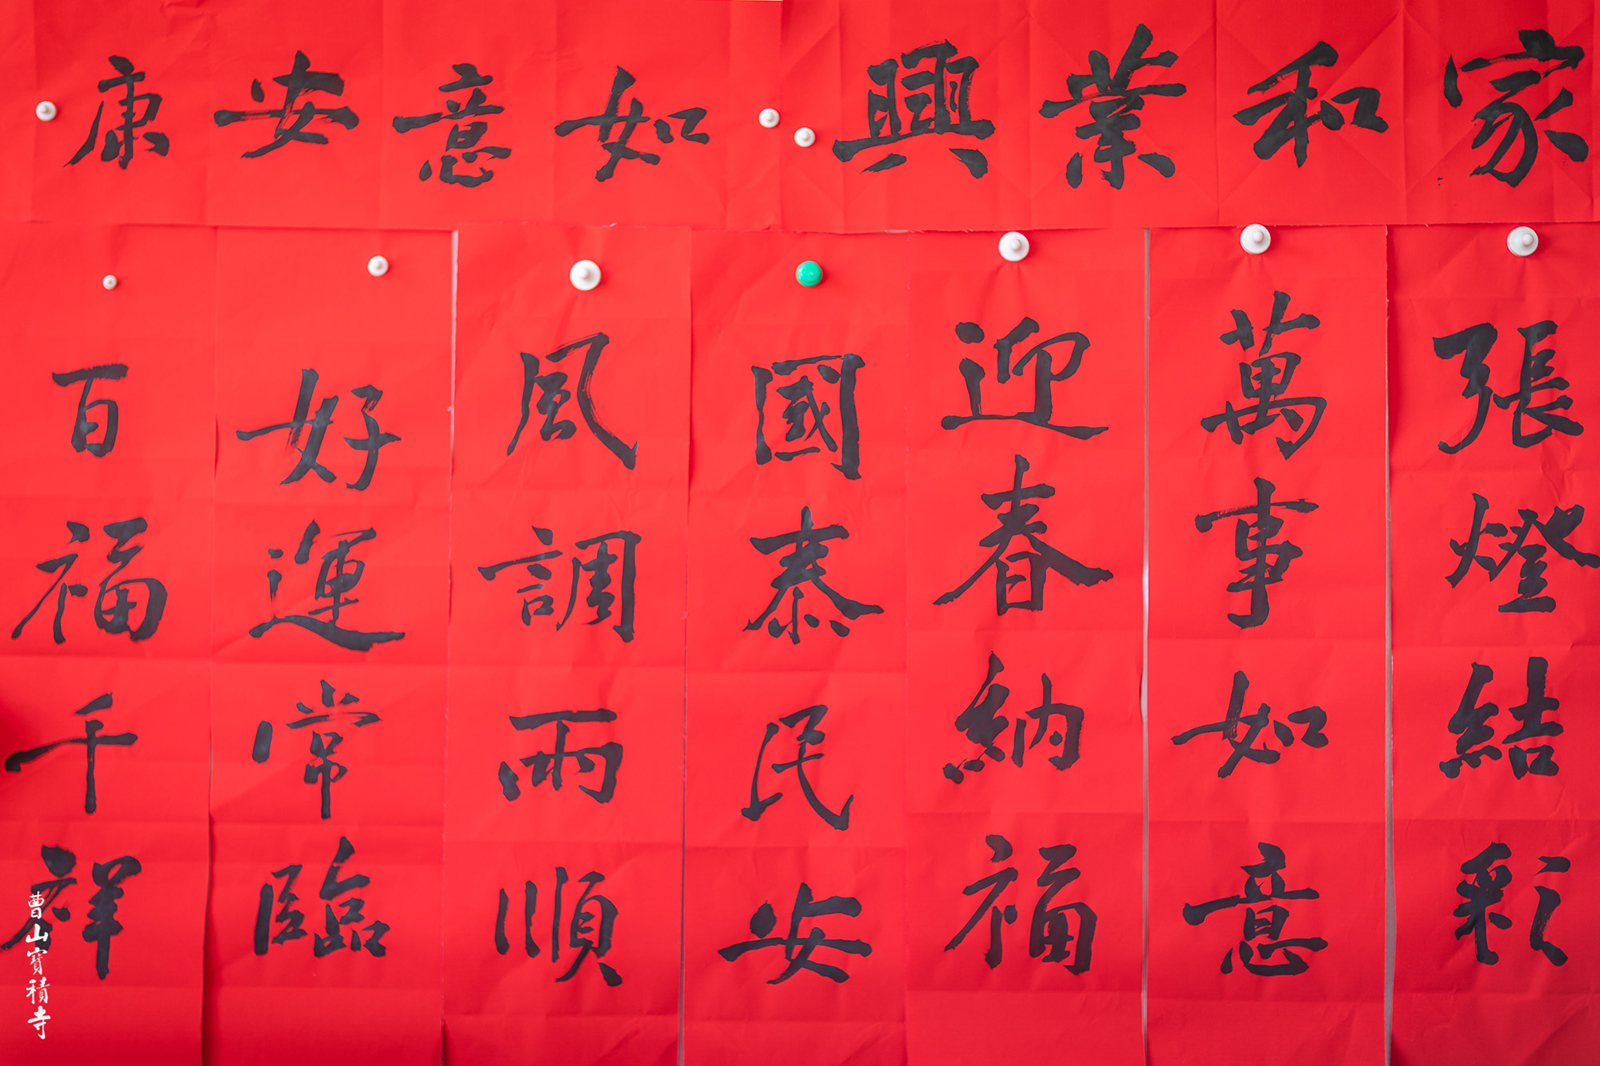 家和業興
如意安康
張燈結彩
萬事如意
迎春納福
國泰民安
風調雨順
好運常臨
百福千祥
曹山寶積寺